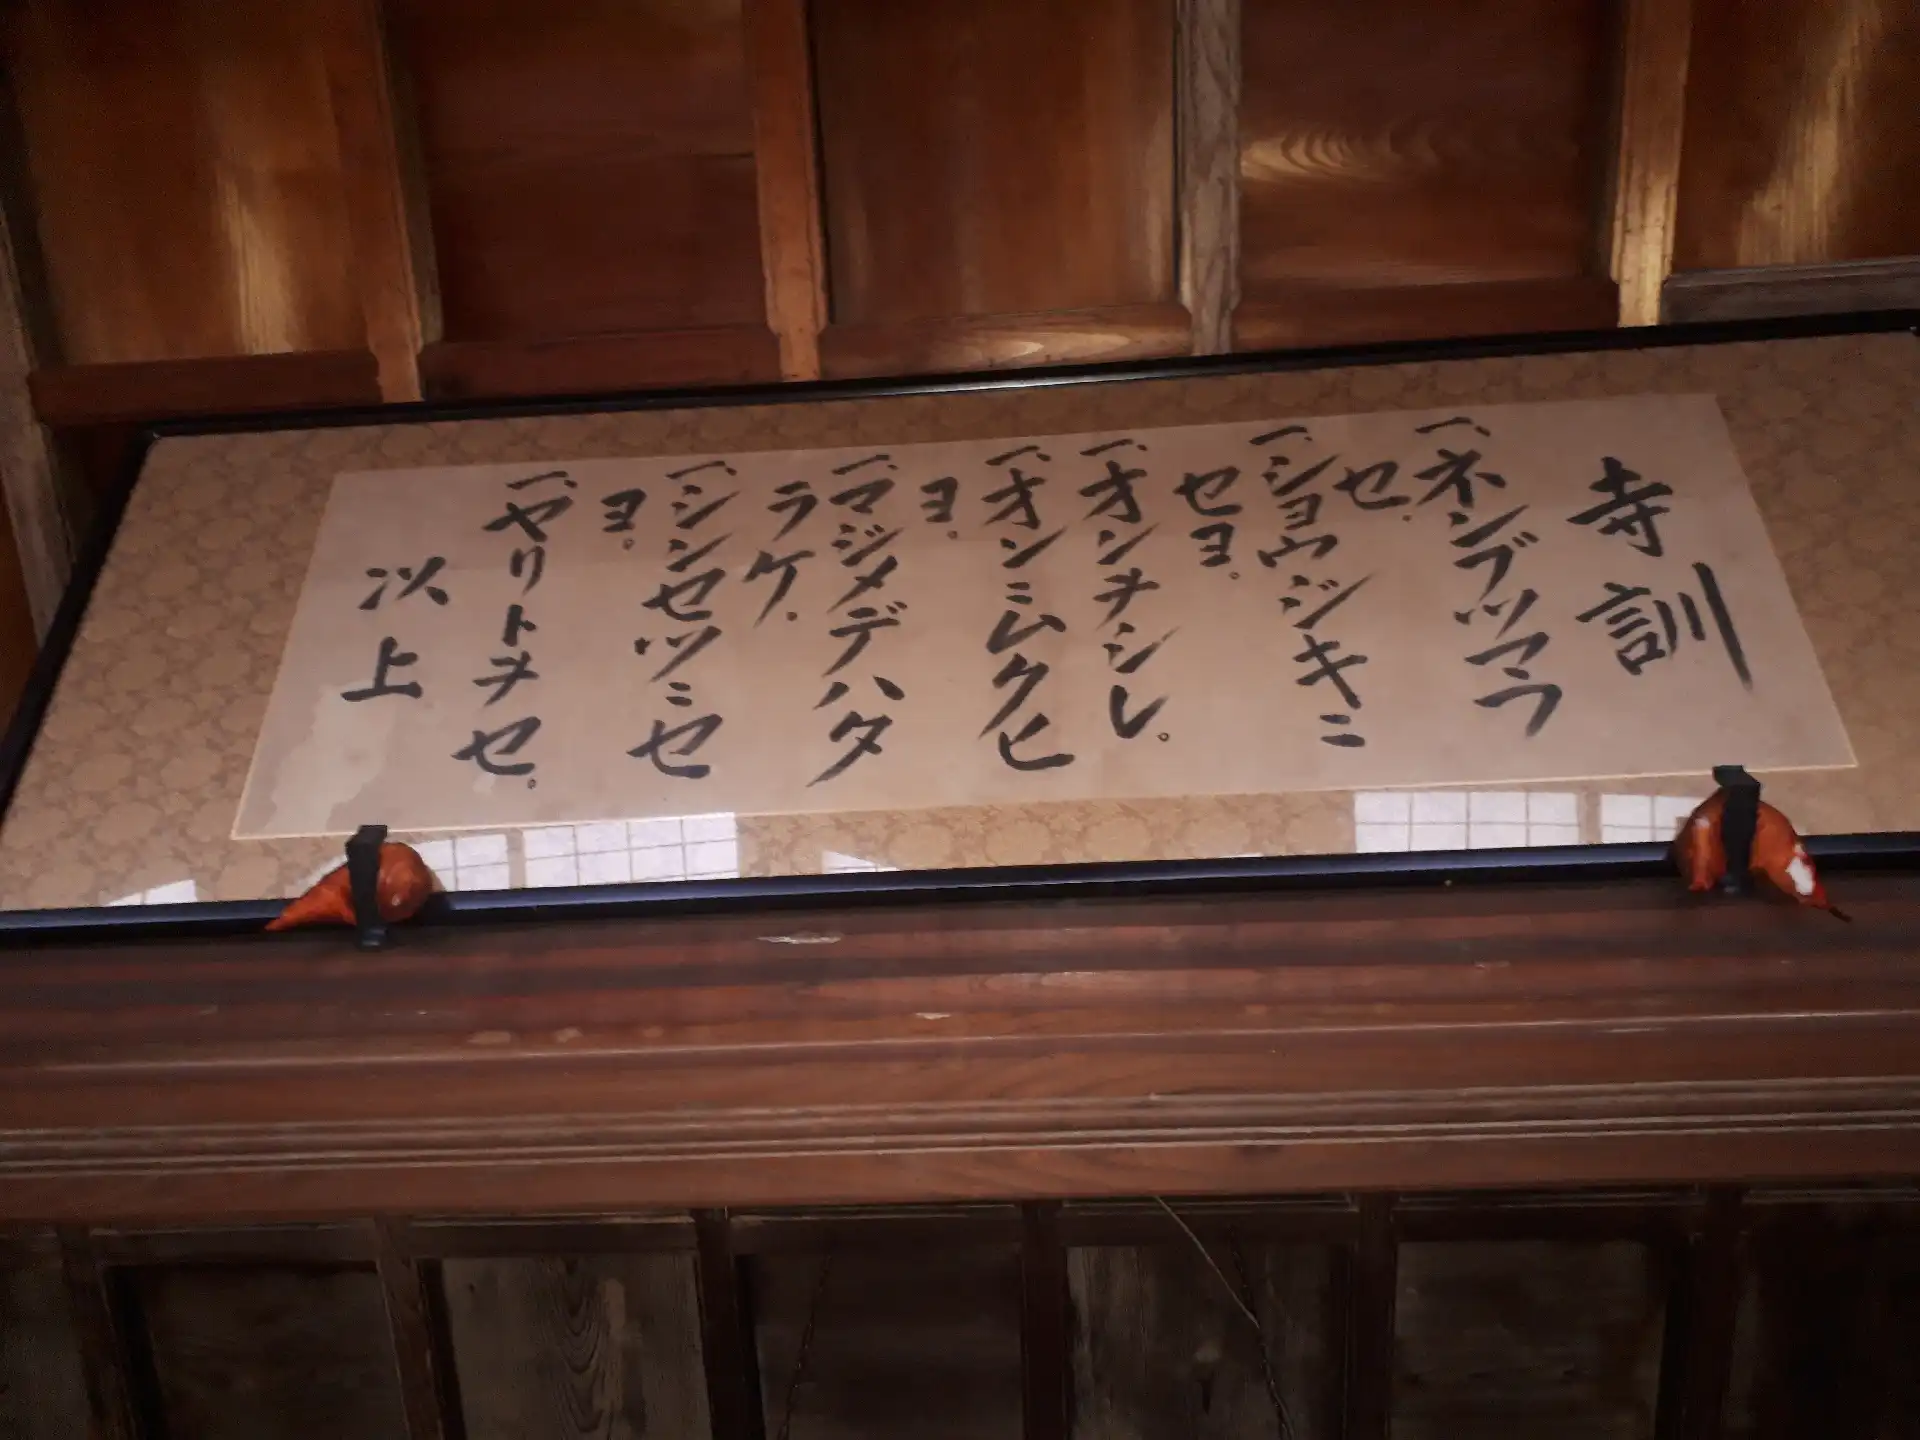 寺訓
一、ネンブツマウ
セ.
一、ショウジキニ
セヨ。
一、オンヲシレ。
一、オンニムクヒ
ヨ。
一、マジメデハタ
ラケ.
一、シンセツニセ
ヨ。
一、ヤリトヲセ。
以上